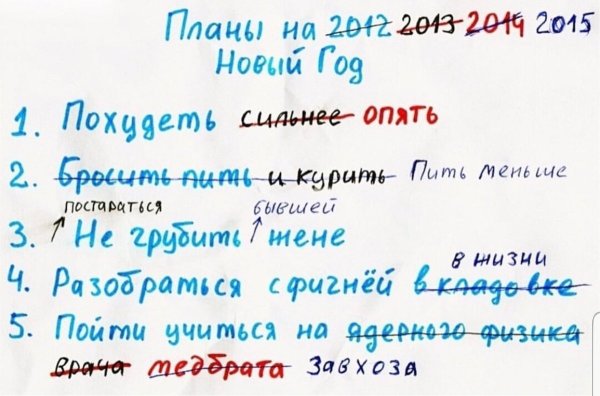 Планы на 2012 2013 2014 2015
Новый Год
1. Похудеть сильнее опять
2. Бросить пить и курить Пить меньше
постараться бывшей
3. Не грубить жене
в жизни
4. Разобраться с фигнёй в кладовке
5. Пойти учиться на ядерного физика
врача медбрата Завхоза